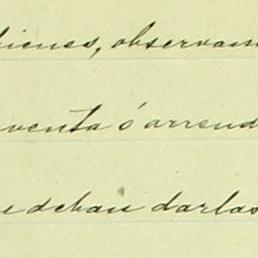 bienes, observan
venta ó arrend
deban darlas